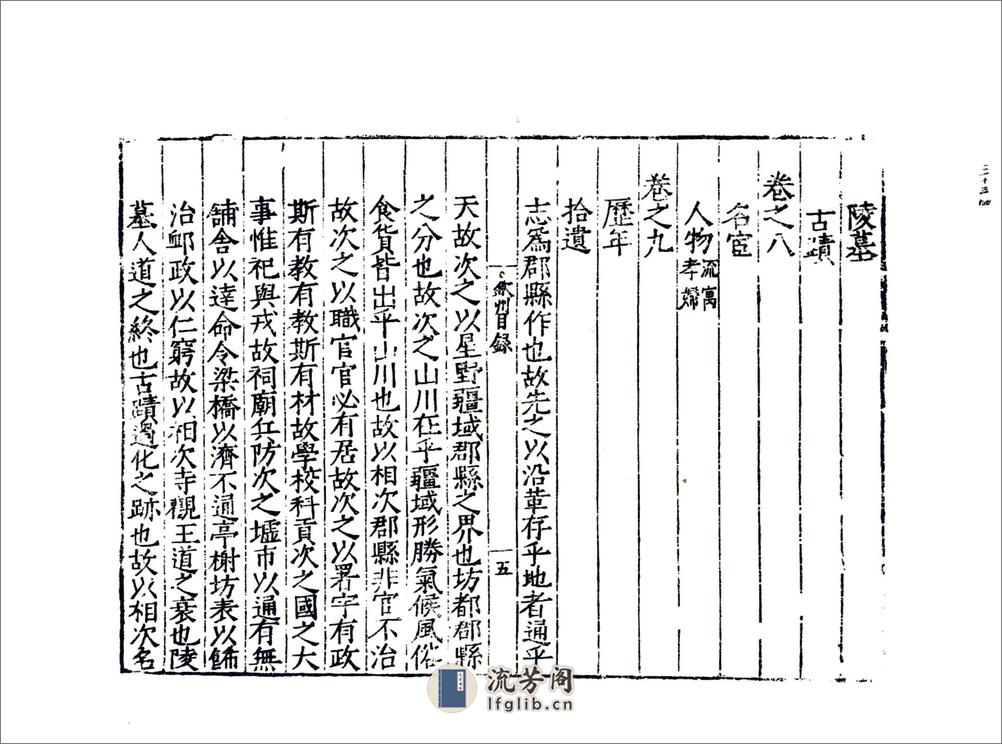 陵墓
古蹟
卷之八
名宦
人物 流寓 孝婦
卷之九
歷年
拾遺
志爲郡縣作也故先之以沿革存乎地者通乎
欽州目録 五
天故次之以星野疆域郡縣之界也坊都郡縣
之分也故次之山川在乎疆域形勝氣候風俗
食貨皆出乎山川也故以相次郡縣非官不治
故次之以職官官必有居故次之以署宇有政
斯有教有教斯有材故學校科貢次之國之大
事惟祀與戎故祠廟兵防次之墟市以通有無
舖舍以達命令梁橋以濟不通亭榭坊表以飾
治邮政以仁窮故以相次寺觀王道之衰也陵
墓人道之終也古蹟過化之跡也故以相次名
流芳阁
lfglib.cn